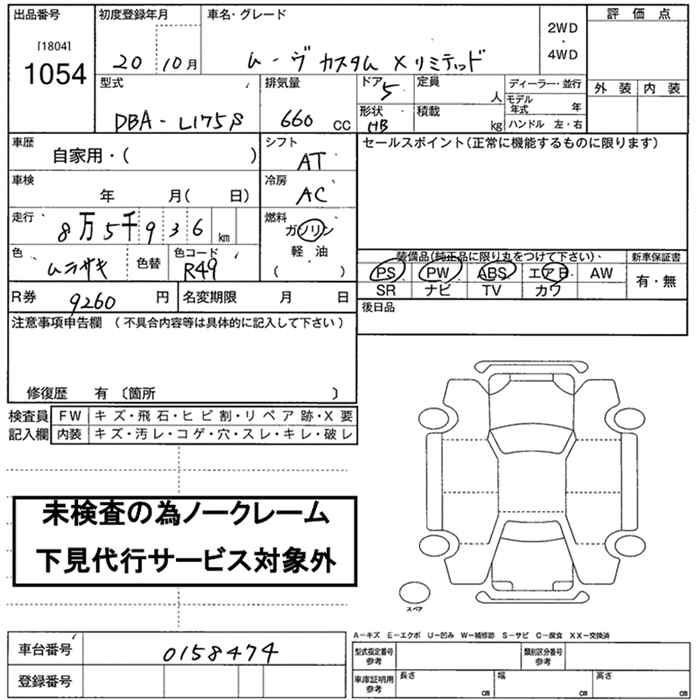 出品番号 初度登録年月 車名・グレード 2WD・4WD 評価点
[1804] 1054 20 10月 ムーヴ カスタム Xリミテッド
外装 内装
型式 排気量 ドア 5 定員 人 ディーラー・並行
モデル年式 年
DBA-L175S 660 CC 形状 HB 積載 kg ハンドル 左・右
車歴 自家用・( ) シフト AT セールスポイント(正常に機能するものに限ります)
車検 年 月( 日) 冷房 AC
走行 8万5千936 km 燃料 ガソリン 軽油 ( )
色 ムラサキ 色替 色コード R49
装備品(純正品に限り丸をつけて下さい)・ 新車保証書
PS PW ABS エアB AW 有・無
SR ナビ TV カワ
R券 9260 円 名変期限 月 日 後日品
注意事項申告欄 (不具合内容等は具体的に記入して下さい)
修復歴 有 〔箇所 〕
検査員記入欄 FW キズ・飛石・ヒビ割・リペア跡・X要
内装 キズ・汚レ・コゲ・穴・スレ・キレ・破レ
未検査の為ノークレーム
下見代行サービス対象外
スペア
A-キズ E-エクボ U-凹み W-補修跡 S-サビ C-腐食 XX-交換済
車台番号 0158474 型式指定番号 参考 類別区分番号 参考
登録番号 車庫証明用 参考 長さ cm 幅 cm 高さ cm